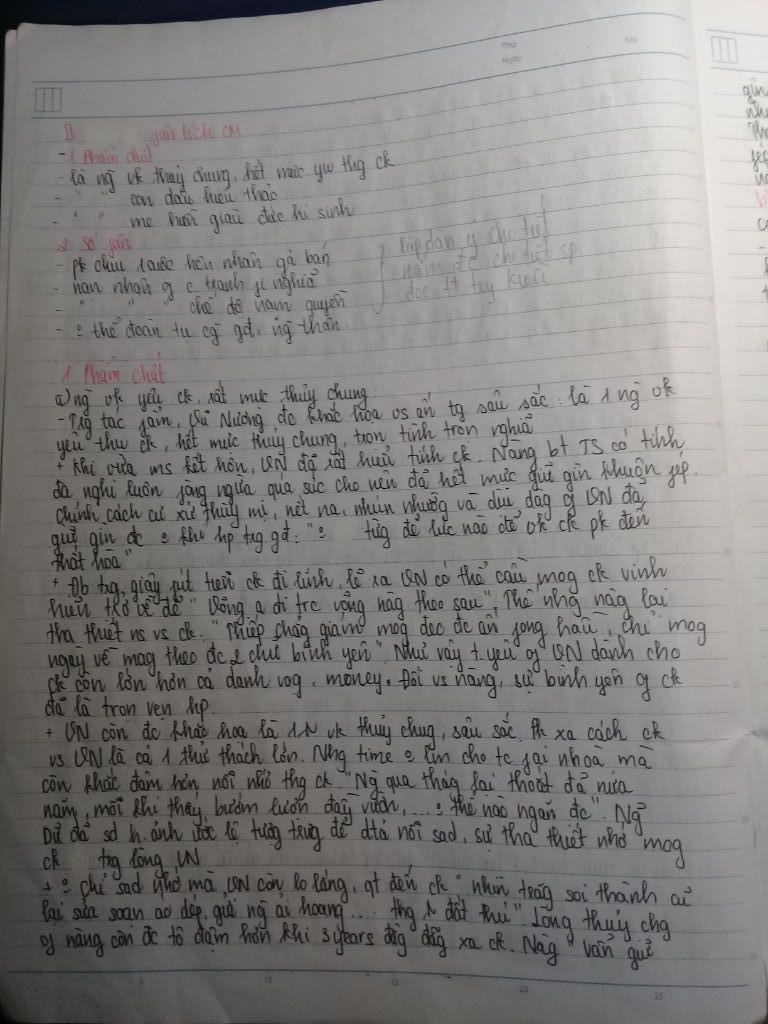 Thứ
Ngày
No
II phân tích CM
- 1 Phẩm chất
- là ng vk thuỷ chung, hết mực yw thg ck
- " " con dâu hiếu thảo
- " " mẹ hiền giàu đức hi sinh
2. Số phận
- pk chịu 1 cuộc hôn nhân gả bán
- nạn nhân c tranh fi nghĩa
- " " " chế độ nam quyền
- thể đoàn tụ gđ, ng thân
Lập dàn ý chi tiết
nắm đc chi tiết sp
1. Phẩm chất
a) ng vk yêu ck, rất mực thuỷ chung
- Trg tác fẩm, Vũ Nương đc khắc họa vs ấn tg sâu sắc: là 1 ng vk
yêu thw ck, hết mực thuỷ chung, trọn tình trọn nghĩa
+ Khi vừa ms kết hôn, VN đã rất hiểu tính ck. Nàng bt TS có tính
đa nghi luôn fòng ngừa quá sức cho nên đã hết mực giữ gìn khuôn fép.
chính cách cư xử thuỳ mị, nết na, nhún nhường và dịu dàg VN đã
giữ gìn đc khí hp trg gđ: " từg để lúc nào để vk ck pk đến
thất hòa"
+ Đb trg, giây fút tiễn ck đi lính, lẽ ra VN có thể cầu mog ck vinh
hiển trở về để "Võng a đi trc võng nàg theo sau", Thế nhg nàg lại
tha thiết ns vs ck: "Thiếp chẳg giám mog đeo đc ấn fong hầu, chỉ mog
ngày về mag theo đc 2 chữ bình yên". Như vậy t.yêu VN dành cho
ck còn lớn hơn cả danh vog, money. Đối vs nàng, sự bình yên ck
đã là trọn vẹn hp.
+ VN còn đc khắc họa là 1 vk thuỷ chug, sâu sắc. Pk xa cách ck
vs VN là cả 1 thử thách lớn. Nhg time làm cho tc fai nhoà mà
còn khắc đậm hơn nỗi nhớ thg ck. "Ng qua thág lại thoắt đã nửa
năm, mỗi khi thấy bướm lượn đầy vườn, ... thể nào ngăn đc". Ng
Dữ đã sd h.ảnh ước lệ tượng trưng để dtả nỗi sad, sự tha thiết nhớ mog
ck trg lòng VN
+ chỉ sad nhớ mà VN còn lo lắng, qt đến ck "nhìn trăg soi thành cũ
lại sửa soạn áo dép, gửi ng ải hoang .... thg đất thú" Lòng thuỷ chg
nàng còn đc tô đậm hơn khi 3 years đằg đẵg xa ck. Nàg "vẫn giữ